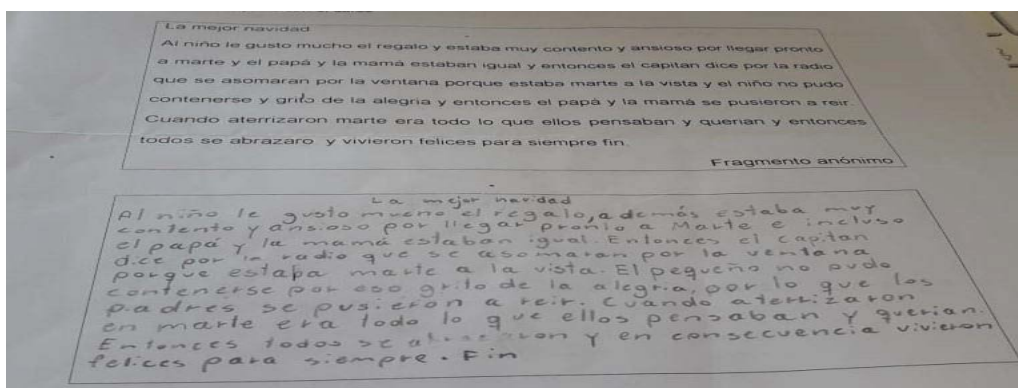 La mejor navidad
Al niño le gusto mucho el regalo y estaba muy contento y ansioso por llegar pronto
a marte y el papá y la mamá estaban igual y entonces el capitan dice por la radio
que se asomaran por la ventana porque estaba marte a la vista y el niño no pudo
contenerse y grito de la alegria y entonces el papá y la mamá se pusieron a reir.
Cuando aterrizaron marte era todo lo que ellos pensaban y querian y entonces
todos se abrazaro y vivieron felices para siempre fin.
Fragmento anónimo
La mejor navidad
Al niño le gusto mucho el regalo, además estaba muy
contento y ansioso por llegar pronto a Marte e incluso
el papá y la mamá estaban igual. Entonces el capitan
dice por la radio que se asomaran por la ventana
porque estaba marte a la vista. El pequeño no pudo
contenerse por eso grito de la alegria, por lo que los
padres se pusieron a reir. Cuando aterrizaron
en marte era todo lo que ellos pensaban y querian.
Entonces todos se abrazaron y en consecuencia vivieron
felices para siempre. Fin